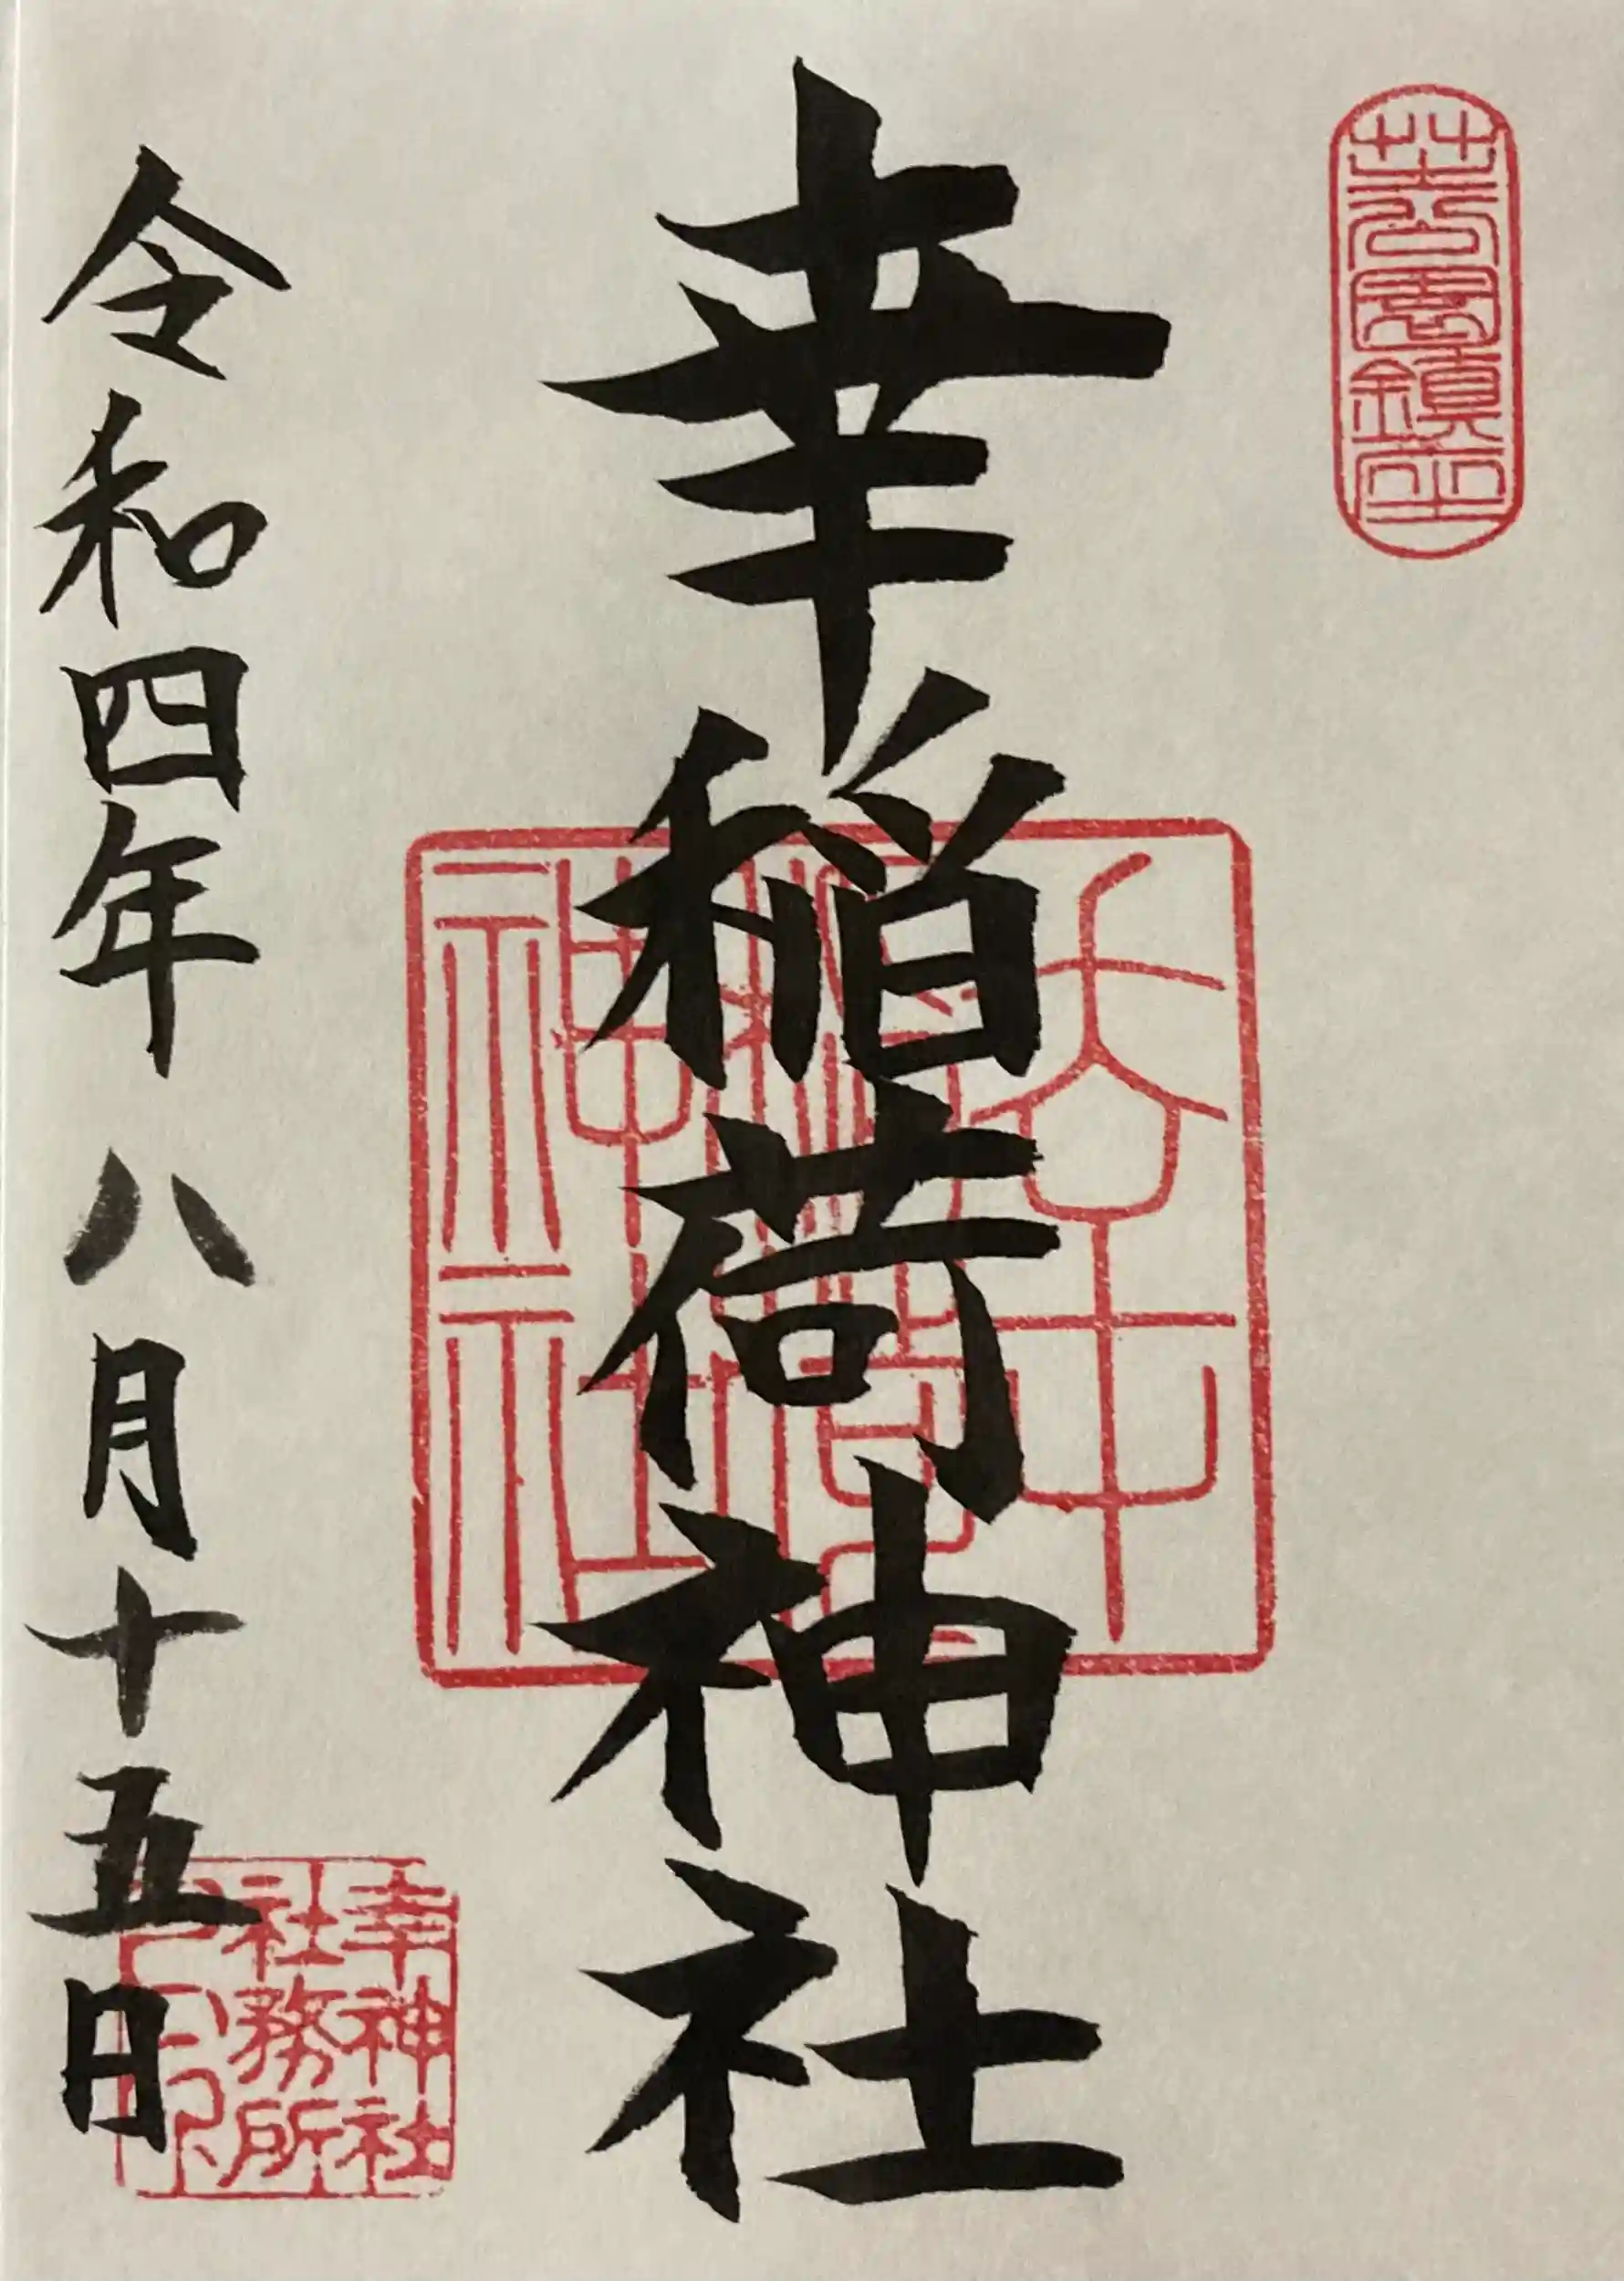 芝公園鎮座
幸稲荷神社
幸稲荷神社
令和四年八月十五日
幸神社
社務所
之印